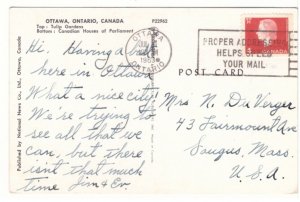 OTTAWA, ONTARIO, CANADA
P22962
Top: Tulip Gardens
Bottom: Canadian Houses of Parliament
Hi. Having a ball
here in Ottawa
What a nice city!
We're trying to
see all that we
can, but there
isn't that much
time Jim & Ev
Published by National News Co., Ltd., Ottawa, Canada
OTTAWA
1963
ONTARIO
PROPER ADDRESSING
HELPS SPEED
YOUR MAIL
POST CARD
Mrs N. Du Verger
43 Fairmount Ave
Saugus, Mass.
U.S.A.